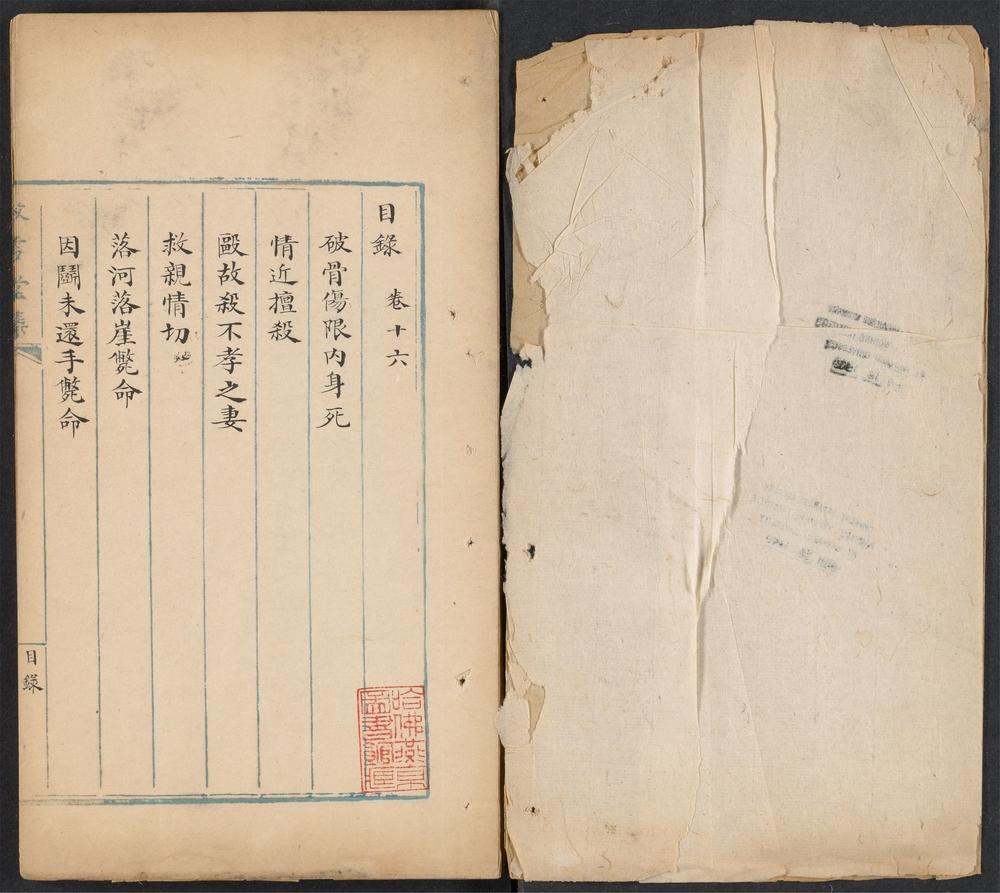 目錄 卷十六
破骨傷限内身死
情近擅殺
毆故殺不孝之妻
救親情切
落河落崖斃命
因鬭未還手斃命
目錄
哈佛燕京
圖書館